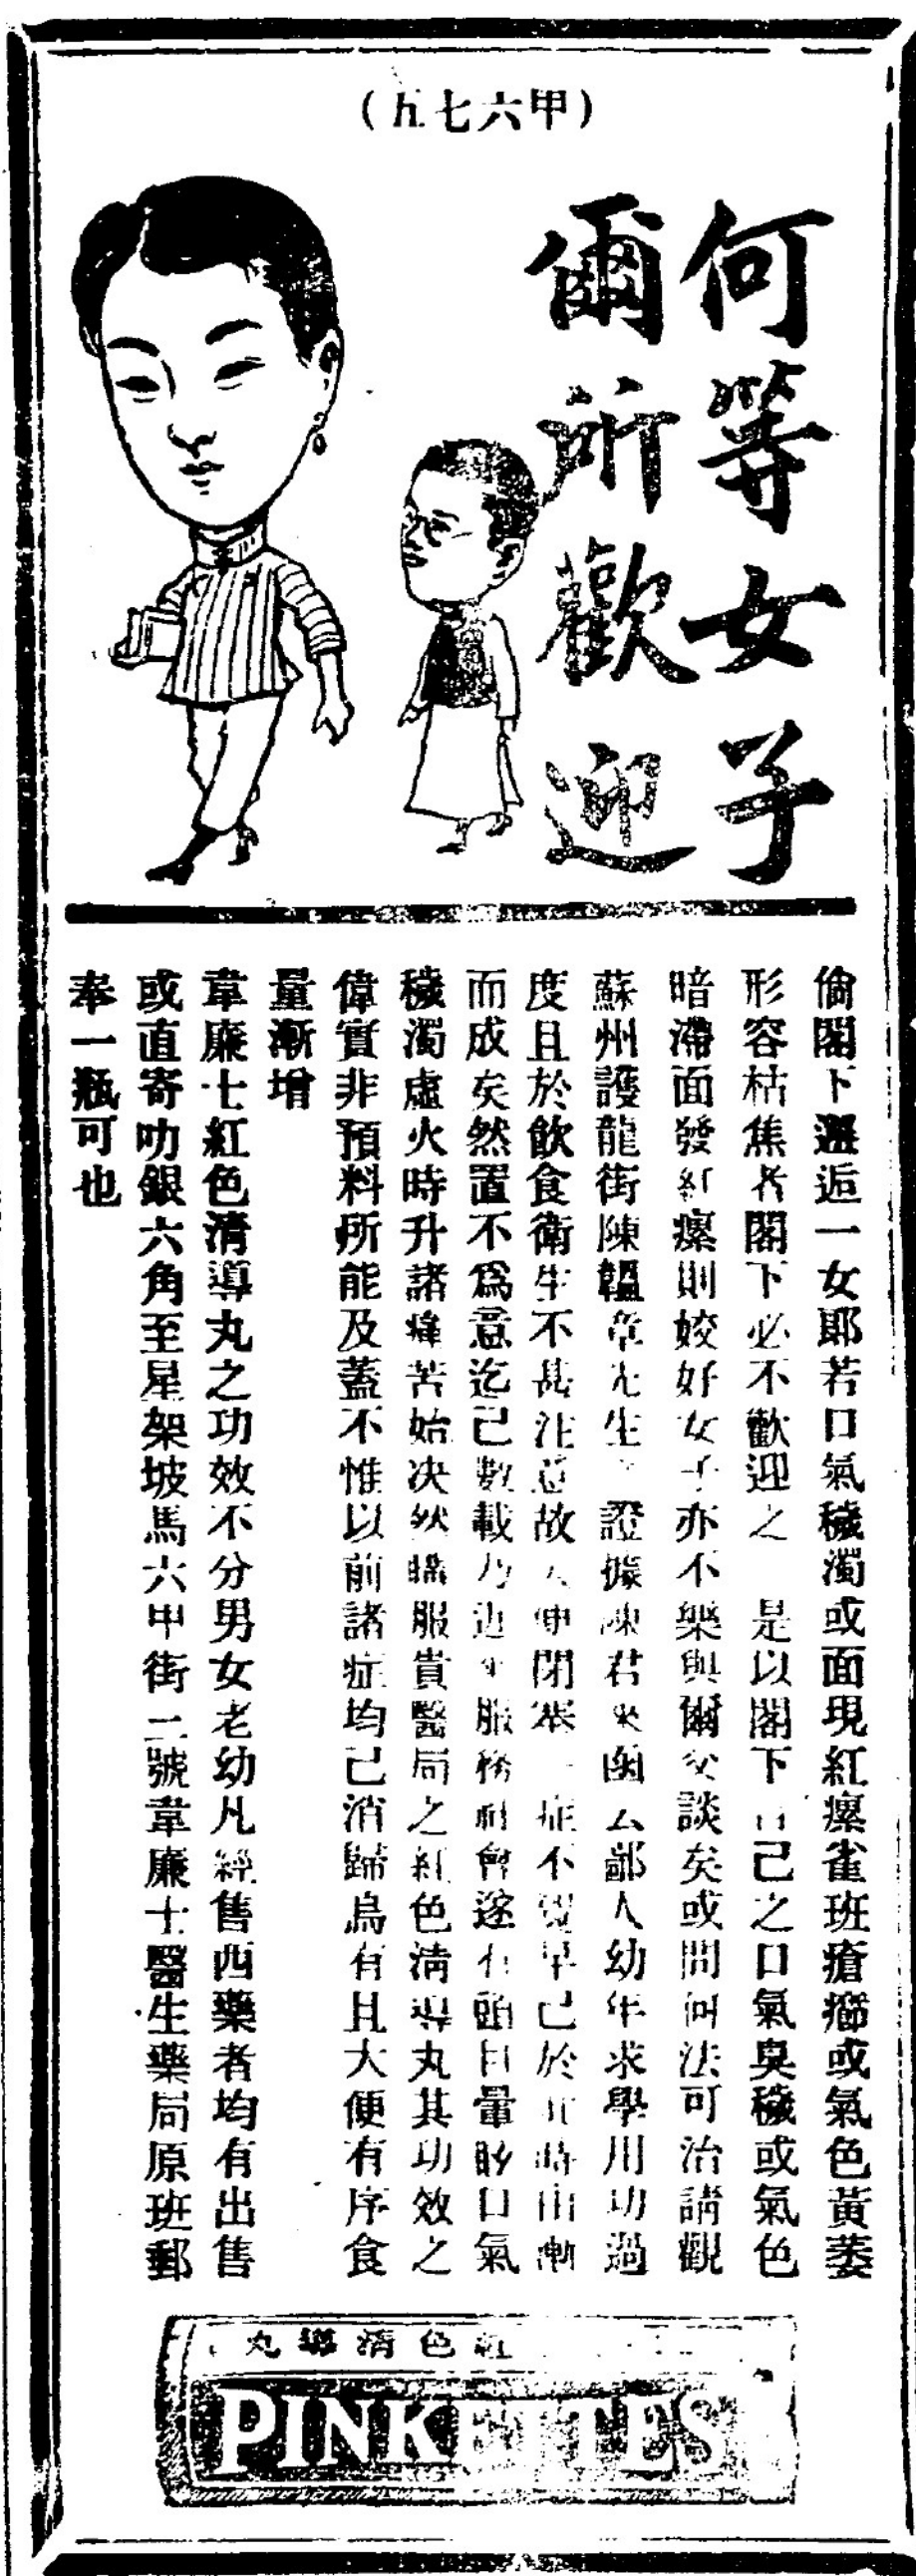 (甲六七五)
何等女子
爾所歡迎
倘閣下邂逅一女郎若口氣穢濁或面現紅瘰雀班瘡癤或氣色黃萎
形容枯焦者閣下必不歡迎之 是以閣下自己之口氣臭穢或氣色
暗滯面發紅瘰則姣好女子亦不樂與爾交談矣或問何法可治請觀
蘇州護龍街陳韞章先生 證據陳君來函云鄙人幼年求學用功過
度且於飲食衛生不甚注意故大便閉塞一症不覺早已於 時由漸
而成矣然置不爲意迄已數載乃近年服務社會遂有頭目暈眩口氣
穢濁虛火時升諸痛苦始决然購服貴醫局之紅色清導丸其功效之
偉實非預料所能及蓋不惟以前諸症均已消歸烏有且大便有序食
量漸增
韋廉士紅色清導丸之功效不分男女老幼凡經售西藥者均有出售
或直寄叻銀六角至星架坡馬六甲街二號韋廉士醫生藥局原班郵
奉一瓶可也
紅色清導丸
PINKETTES